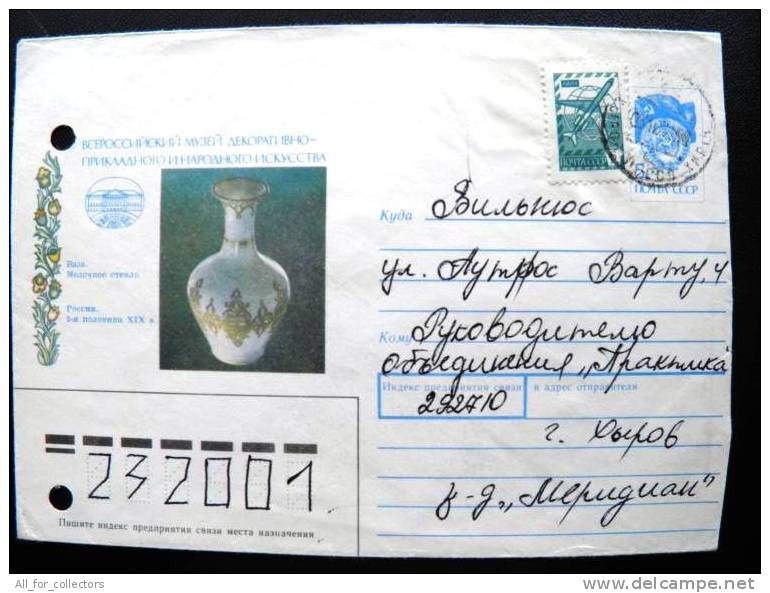 ВСЕРОССИЙСКИЙ МУЗЕЙ ДЕКОРАТИВНО-
ПРИКЛАДНОГО И НАРОДНОГО ИСКУССТВА
Ваза.
Молочное стекло
Россия.
2-я половина XIX в.
ПОЧТА СССР
ПОЧТА СССР
Куда Вильнюс
ул. Аушрос Варту, 4
Кому Руководителю
объединения „Практика"
Индекс предприятия связи и адрес отправителя
292710
г. Хыров
з-д „Меридиан"
232001
Пишите индекс предприятия связи места назначения
All_for_collectors
www.delcampe.net